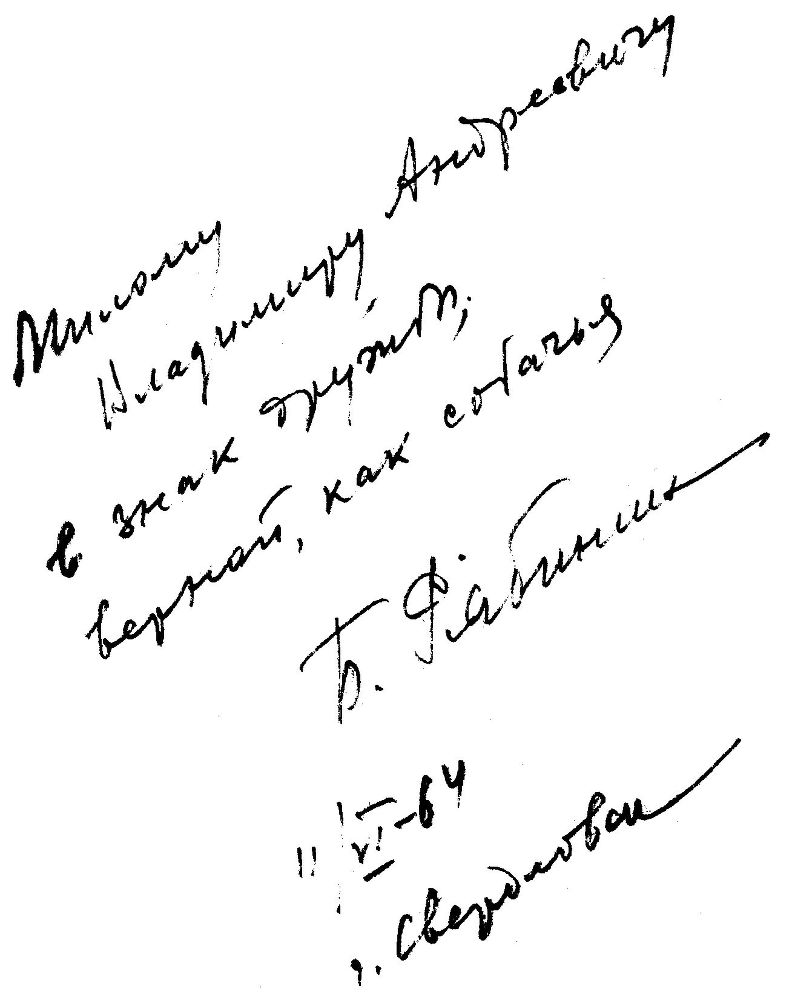 Милому
Владимиру Андреевичу
в знак дружбы,
верной, как собачья
Б. Рябинин
11/VI-64
г. Свердловск